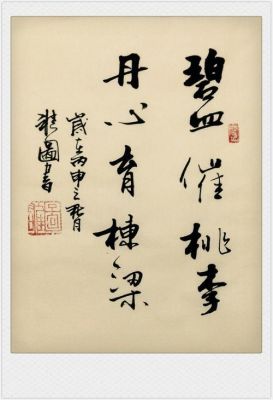 碧血催桃李
丹心育棟梁
歲在丙申之秋月
圖書